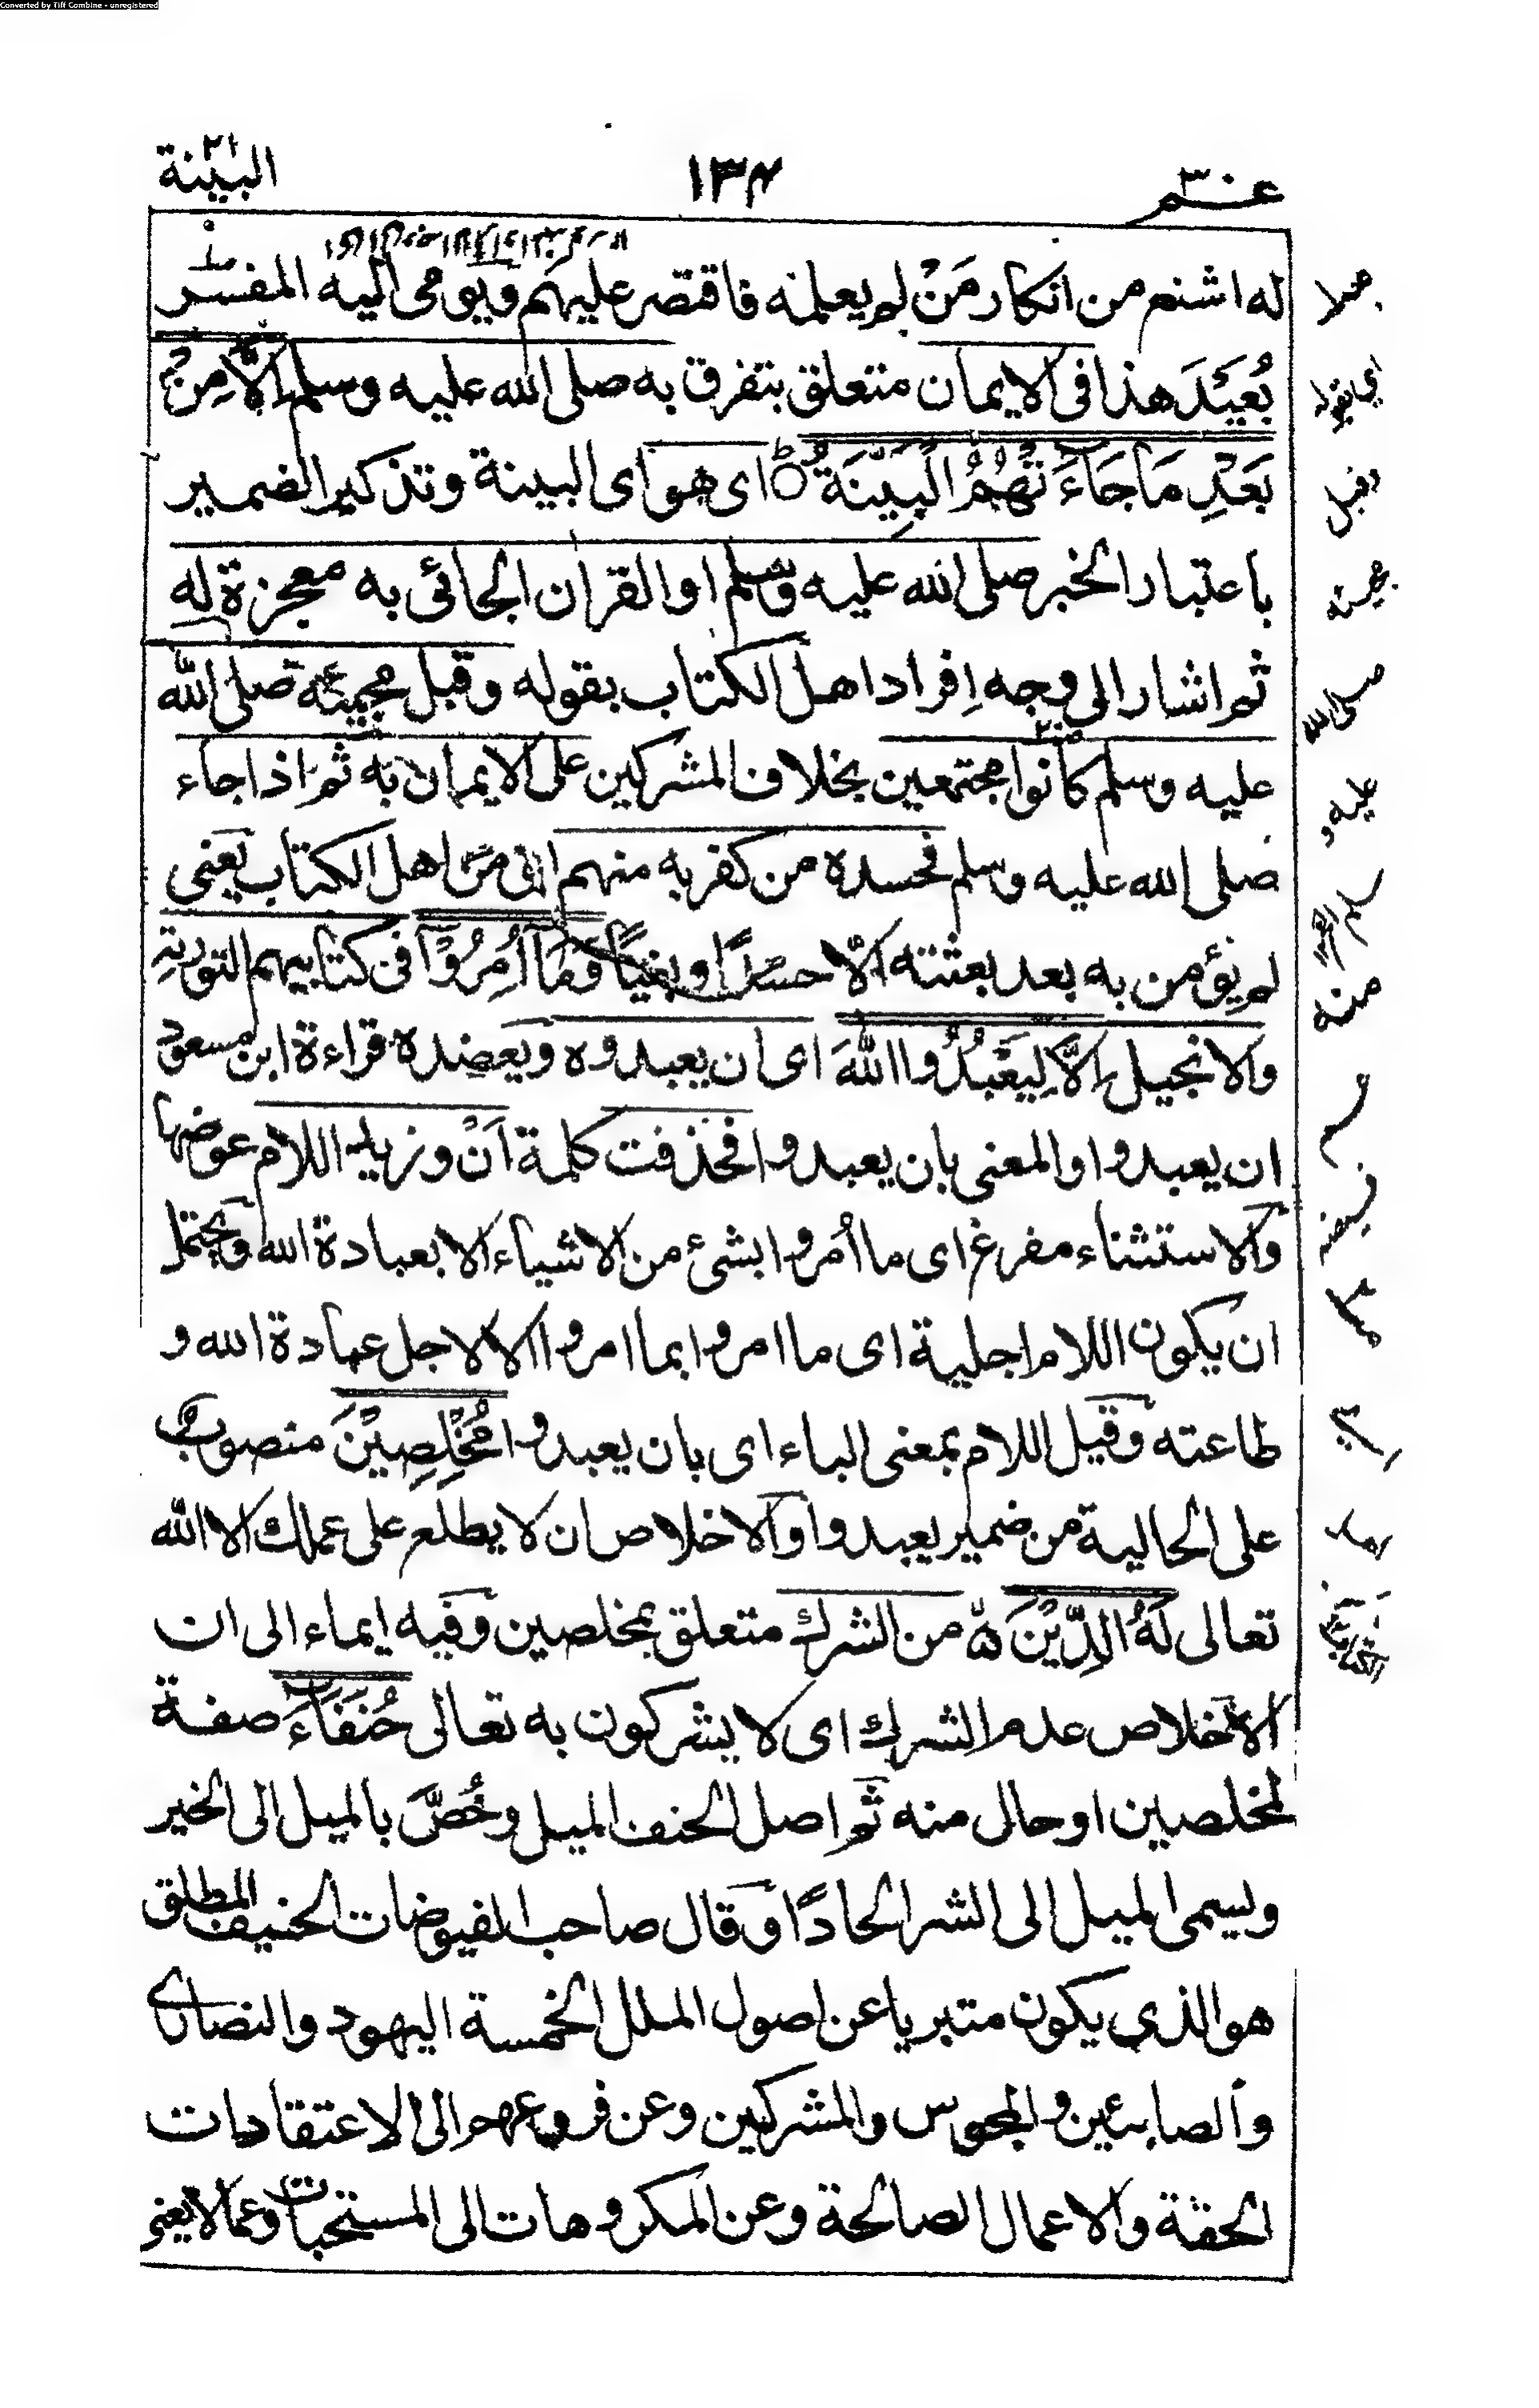 Converted by Tiff Combine - unregistered
عم ٣٠
١٣٤
البينة
له اشنع من انكار من لم يعلمه فاقتصر عليهم ويومى اليه المفسر
بُعَيْدَ هذا فى الايمان متعلق بتفرق به صلى الله عليه وسلم اِلَّا مِنْۢ
بَعْدِ مَا جَآءَ تْهُمُ الْبَيِّنَةُ اى هو اى البينة وتذكير الضمير
باعتبار الخبر صلى الله عليه وسلم او القران الجائى به معجزة له
ثم اشار الى وجه اِفراد اهل الكتاب بقوله وقبل مجيئه صلى الله
عليه وسلم كانوا مجتمعين بخلاف المشركين على الايمان به ثم اذا جاء
صلى الله عليه وسلم فحسده من كفر به منهم اى من اهل الكتاب يعنى
لم يؤمن به بعد بعثته الا حسدًا وبغيًا وَمَآ اُمِرُوْٓا فى كتابيهم التورىة
والانجيل اِلَّا لِيَعْبُدُوا اللّٰهَ اى ان يعبدوه ويعضده قراءة ابن مسعود
ان يعبدوا او المعنى بان يعبدوا فحذفت كلمة اَنْ وزيد اللام عوضها
والاستثناء مفرغ اى ما اُمروا بشئ من الاشياء الا بعبادة الله ويحتمل
ان يكون اللام اجلية اى ما امروا بما امروا الا لاجل عبادة الله و
طاعته وقيل اللام بمعنى الباء اى بان يعبدوا مُخْلِصِيْنَ منصوب
على الحالية من ضمير يعبدوا والاخلاص ان لا يطلع على عملك الا الله
تعالى لَهُ الدِّيْنَ من الشرك متعلق بمخلصين وفيه ايماء الى ان
الاخلاص عدم الشرك اى لا يشركون به تعالى حُنَفَآءَ صفة
لمخلصين او حال منه ثم اصل الحنف الميل وخُصَّ بالميل الى الخير
ويسمى الميل الى الشر الحادًا وقال صاحب الفيوضات الحنيف المطلق
هو الذى يكون متبريا عن اصول الملل الخمسة اليهود والنصارى
والصابئين والمجوس والمشركين وعن فروعها الى الاعتقادات
الحقة والاعمال الصالحة وعن المكروهات الى المستحبات وعما لا يعنى